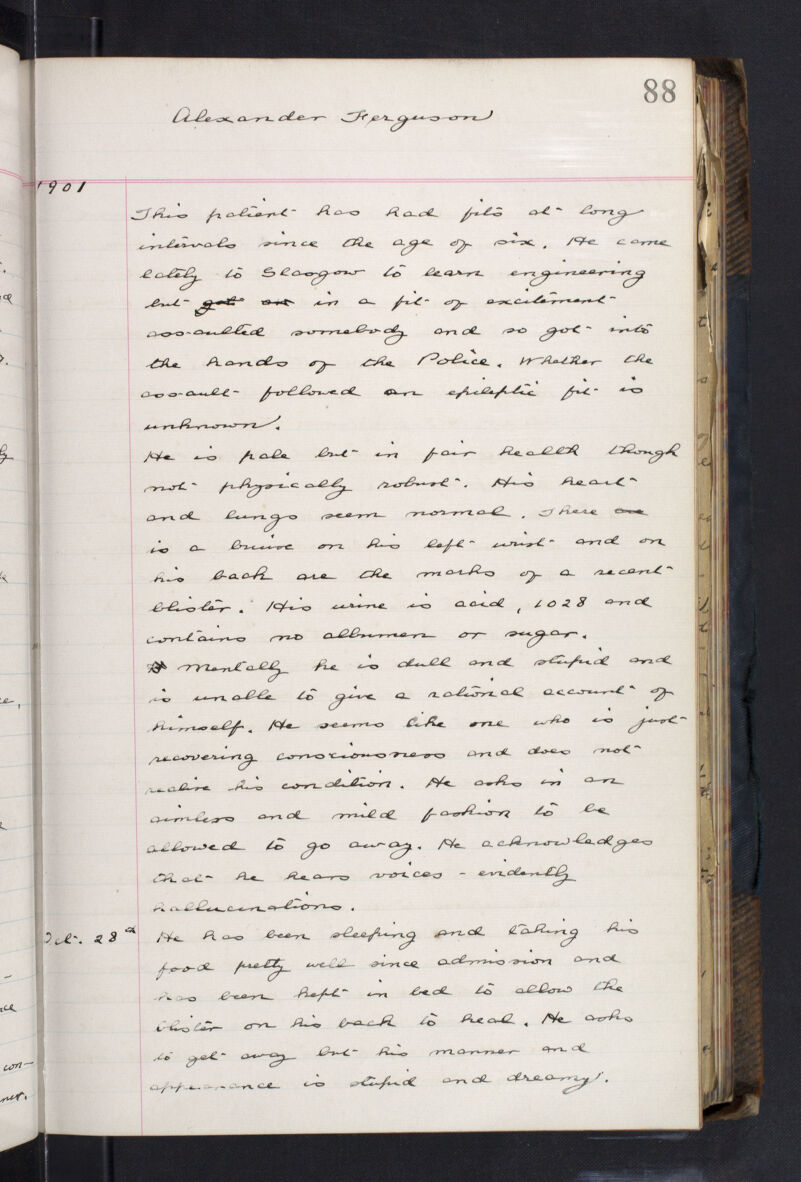 88
Alexander Ferguson
1901
This patient has had fits at long
intervals since the age of six. He came
lately to Glasgow to learn engineering
but got in a fit of excitement
assaulted somebody and so got into
the hands of the Police. Whether the
assault followed an epileptic fit is
unknown.
He is pale but in fair health though
not physically robust. His heart
and lungs seem normal. There are
is a bruise on his left wrist and on
his back are the marks of a recent
blister. His urine is acid, 1028 and
contains no albumen or sugar.
Mentally he is dull and stupid and
is unable to give a rational account of
himself. He seems like one who is just
recovering consciousness and does not
realise his condition. He asks in an
aimless and mild fashion to be
allowed to go away. He acknowledges
that he hears voices - evidently
hallucinations.
Oct. 28th He has been sleeping and taking his
food pretty well since admission and
has been kept in bed to allow the
blister on his back to heal. He asks
to get away but his manner and
appearance is stupid and dreamy.
con-